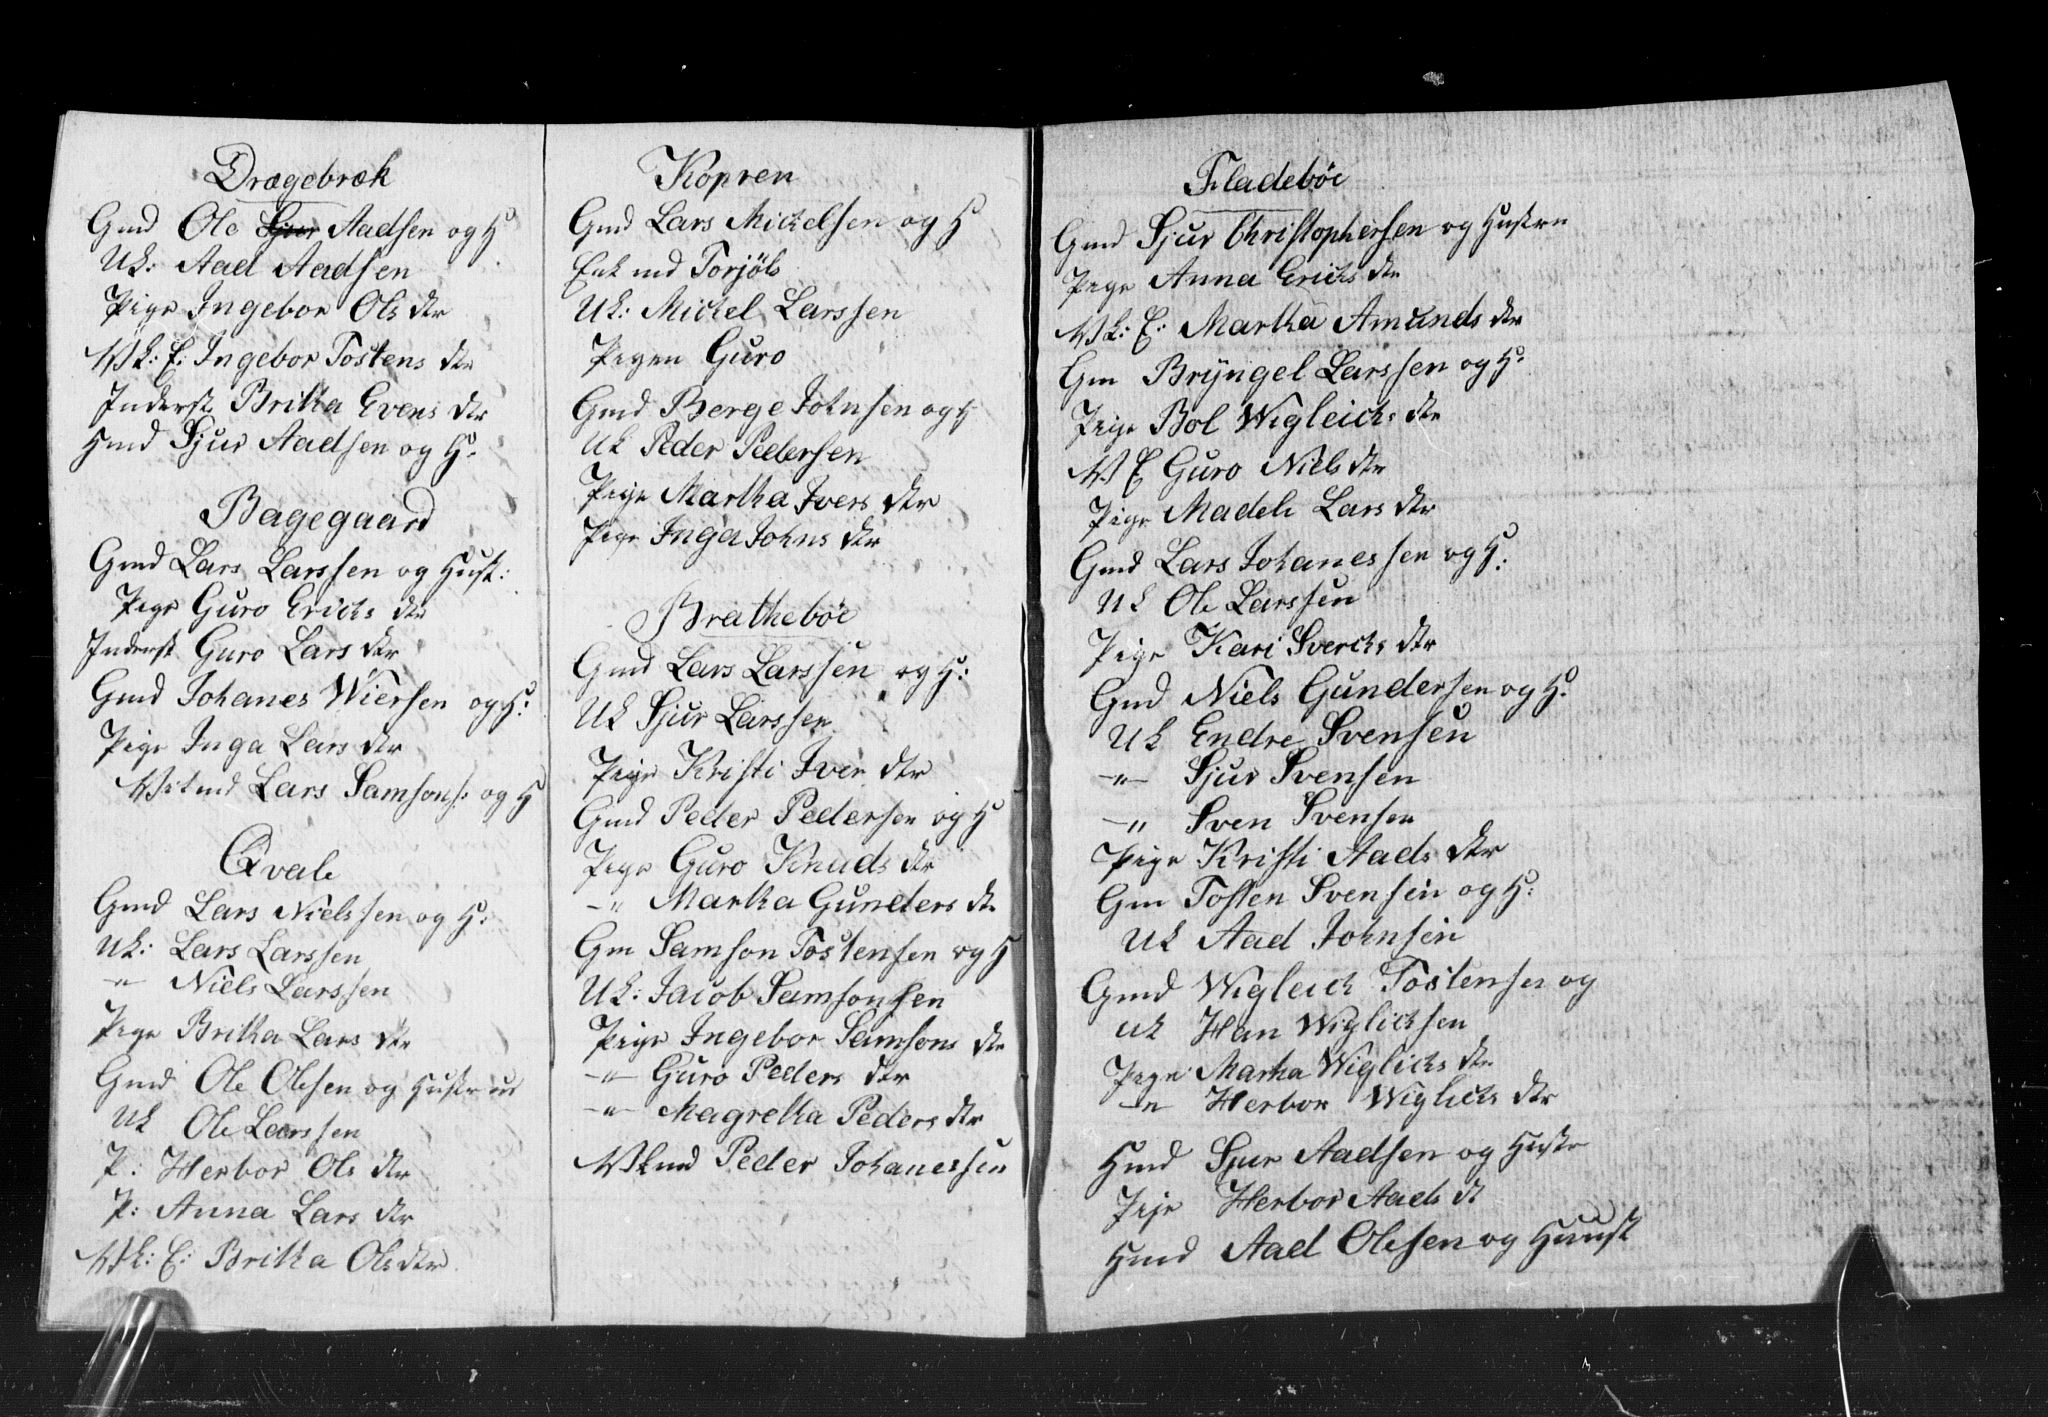 Drægebræk
Gmd Ole Sjur Aadsen og H
Uk: Aad Aadsen
Pige Ingebor Ols dtr
Wk: E: Ingebor Tostens dtr
Inderst Britha Evens dtr
Hmd Sjur Aadsen og H:
Bagegaard
Gmd Lars Larssen og Hust:
Pige Guro Erichs dtr
Inderst Guro Lars dtr
Gmd Johanes Wiersen og H:
Pige Inga Lars dtr
Lars Samsons: og H
Qvale
Gmd Lars Nielssen og H:
Uk: Lars Larssen
-"- Niels Larssen
Pige Britha Lars dtr
Gmd Ole Olesen og Hustrue
Uk Ole Larssen
P: Herbor Ols dtr
P: Anna Lars dtr
Wk: E: Britha Olsdtr
Kopren
Gmd Lars Mickelsen og H
Enkmd Torjöls
Uk: Mickel Larssen
Pigen Guro
Gmd Berge Johnsen og H
Uk Peder Pedersen
Pige Martha Ivers dtr
Pige Inga Johns dtr
Brathebøe
Gmd Lars Larssen og H:
Uk Sjur Larssen
Pige Kristi Iver dtr
Gmd Peder Pedersen og H
Pige Guro Knuds dtr
-"- Martha Gunders dtr
Gm Samson Tostensen og H
Uk: Jacob Samsonsen
Pige Ingebor Samsons dtr
-"- Guro Peders dtr
-"- Magretha Peders dtr
Wkmd Peder Johanessen
Fladebøe
Gmd Sjur Christophersen og Hustru
Pige Anna Erichs dtr
Wk: E: Martha Amunds dtr
Gm Bryngel Larssen og H:
Pige Bol Wigleichs dtr
W E Guro Niels dtr
Pige Madeli Lars dtr
Gmd Lars Johanessen og H:
Uk Ole Larssen
Pige Kari Sverchs dtr
Gmd Niels Gundersen og H:
Uk Endre Svensen
-"- Sjur Svensen
-" Sven Svensen
Pige Kristi Aads dtr
Gm Tosten Svensen og H:
Uk Aad Johnsen
Gmd Wigleich Tostensen og
Uk Han Wiglichsen
Pige Martha Wiglichs dtr
-"- Herbor Wiglichs dtr
Hmd Sjur Aadsen og Hustr
Pige Herbor Aads dt
Hmd Aad Olesen og Huust